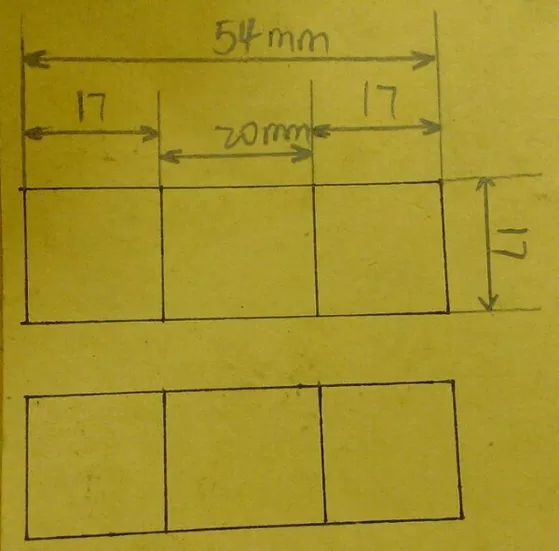 54mm
17
20mm
17
17